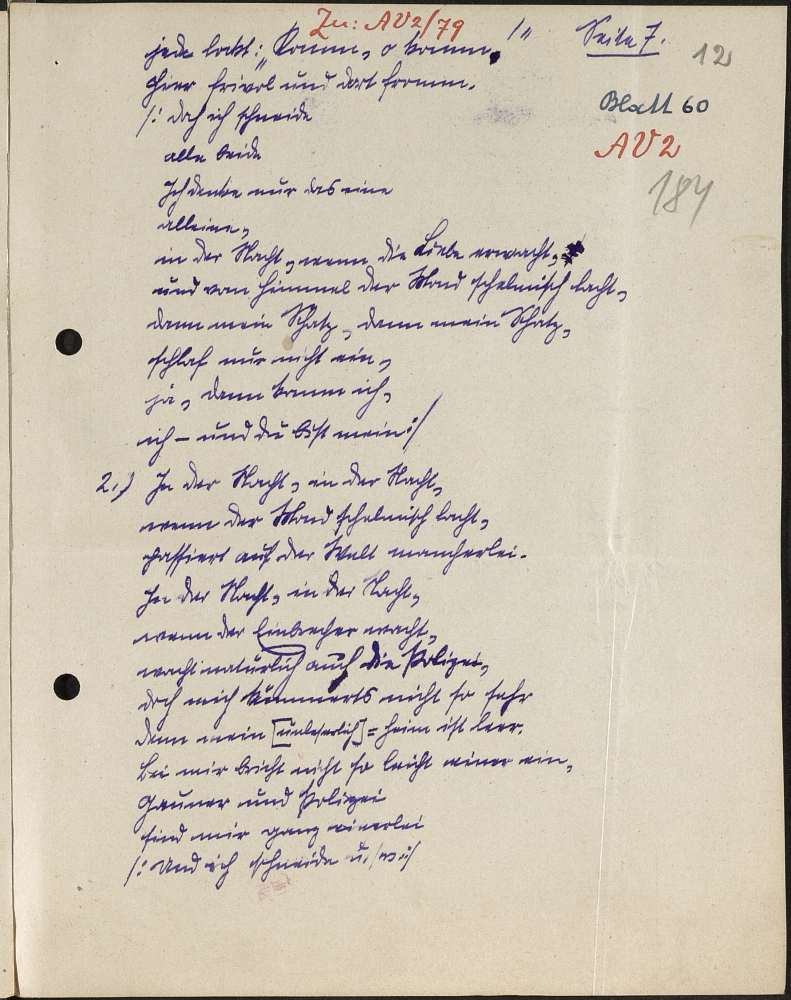 Zu: AV2/79
Seite 7.
12
jede lockt: "Komm, o komm,
hier frivol und dort fromm.
Blatt 60
/: doch ich schneide
AV2
alle beide
184
Ich denke nur das eine
alleine,
in der Nacht, wenn die Liebe erwacht,
und vom Himmel der Mond schelmisch lacht,
dann mein Schatz, dann mein Schatz,
schlaf nur nicht ein,
ja, dann komm ich,
ich – und du bist mein :/
2.) In der Nacht, in der Nacht,
wenn der Mond schelmisch lacht,
passiert auf der Welt mancherlei.
In der Nacht, in der Nacht,
wenn der Einbrecher wacht,
wacht natürlich auch die Polizei,
doch mich kümmerts nicht so sehr
denn mein [unleserlich] = heim ist leer.
Bei mir bricht nicht so leicht einer ein,
Gauner und Polizei
sind mir ganz einerlei
/: Und ich schneide u.s.w. :/